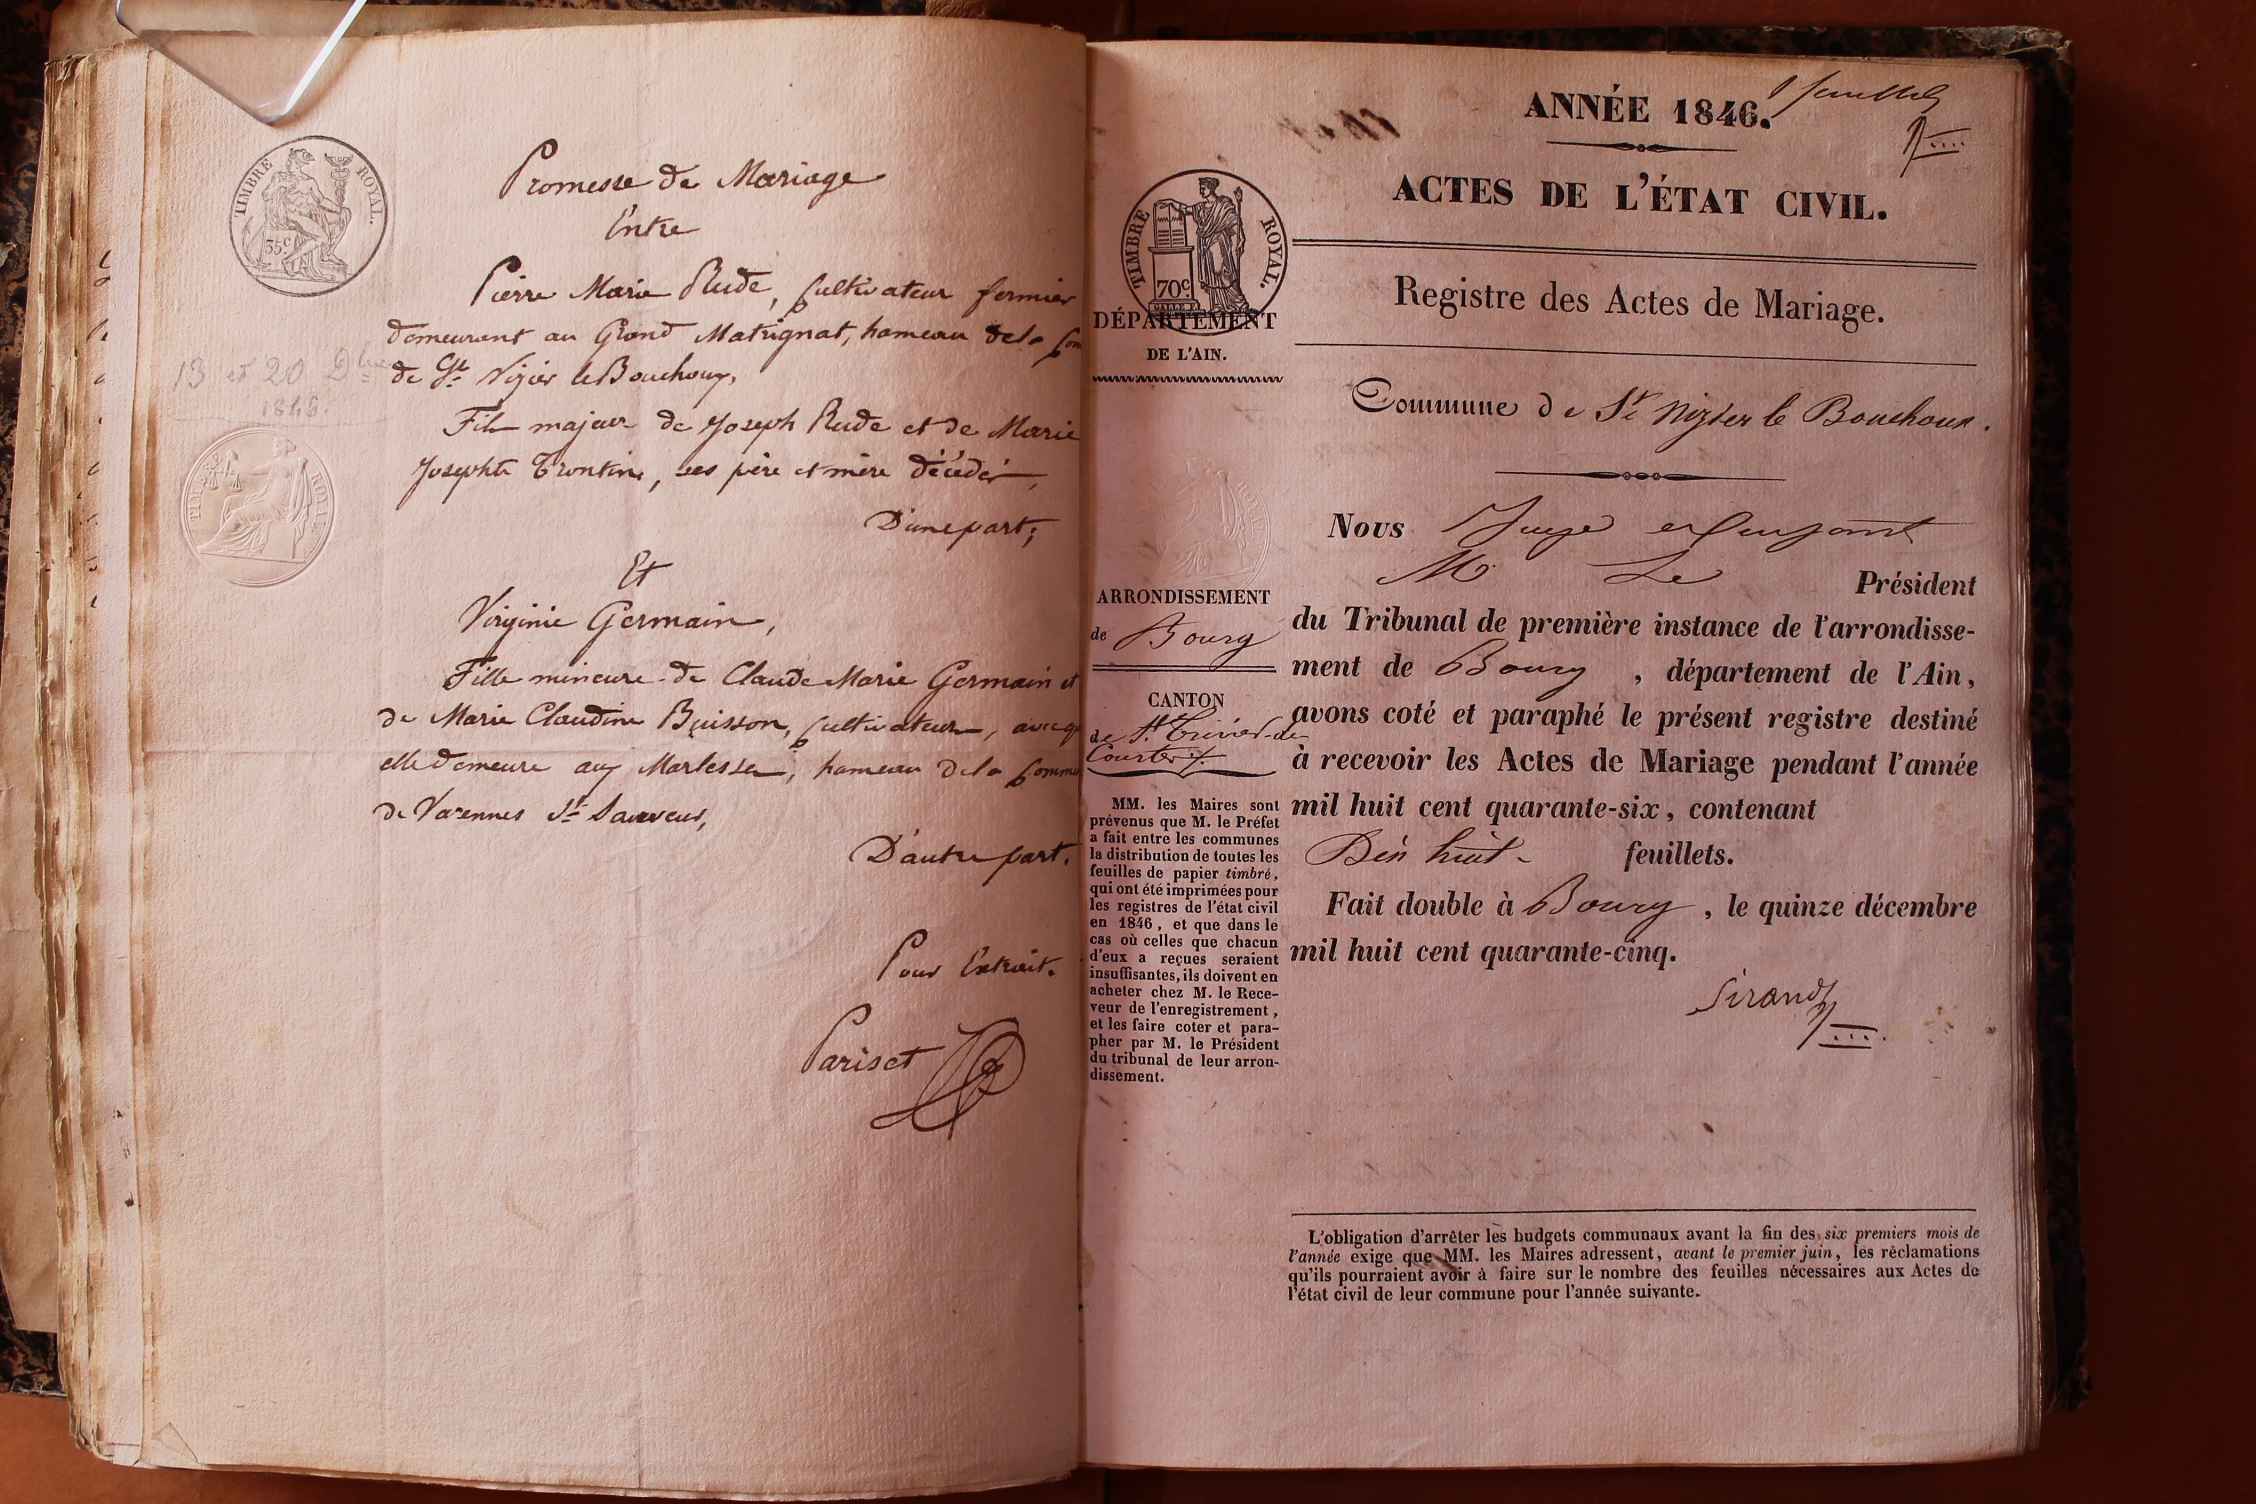 TIMBRE ROYAL.
35c
Promesse de Mariage
Entre
Pierre Marie Rude, Cultivateur fermier
demeurant au Grand Matrignat, hameau de la Com
13 et 20 Xbre
1845.
de St. Nizier le Bouchoux,
Fils majeur de Joseph Rude et de Marie
Josephte Trontin, ses père et mère décédés,
D'une part;
Et
Virginie Germain,
Fille mineure de Claude Marie Germain et
de Marie Claudine Buisson, Cultivateurs, avec q
elle demeure aux Marlesse, hameau de la Commu
de Varennes St. Sauveur,
D'autre part.
Pour Extrait.
Pariset
ANNÉE 1846.
1r feuillet
ACTES DE L'ÉTAT CIVIL.
Registre des Actes de Mariage.
TIMBRE ROYAL.
70c.
DÉPARTEMENT
DE L'AIN.
Commune de St Nizier le Bouchoux.
Nous Juge
Mr Le Président
du Tribunal de première instance de l'arrondisse-
ment de Bourg, département de l'Ain,
avons coté et paraphé le présent registre destiné
à recevoir les Actes de Mariage pendant l'année
mil huit cent quarante-six, contenant
Dix huit feuillets.
Fait double à Bourg, le quinze décembre
mil huit cent quarante-cinq.
Sirand
ARRONDISSEMENT
de Bourg
CANTON
de St. Trivier-de
Courtes
MM. les Maires sont
prévenus que M. le Préfet
a fait entre les communes
la distribution de toutes les
feuilles de papier timbré,
qui ont été imprimées pour
les registres de l'état civil
en 1846, et que dans le
cas où celles que chacun
d'eux a reçues seraient
insuffisantes, ils doivent en
acheter chez M. le Rece-
veur de l'enregistrement,
et les faire coter et para-
pher par M. le Président
du tribunal de leur arron-
dissement.
L'obligation d'arrêter les budgets communaux avant la fin des six premiers mois de
l'année exige que MM. les Maires adressent, avant le premier juin, les réclamations
qu'ils pourraient avoir à faire sur le nombre des feuilles nécessaires aux Actes de
l'état civil de leur commune pour l'année suivante.